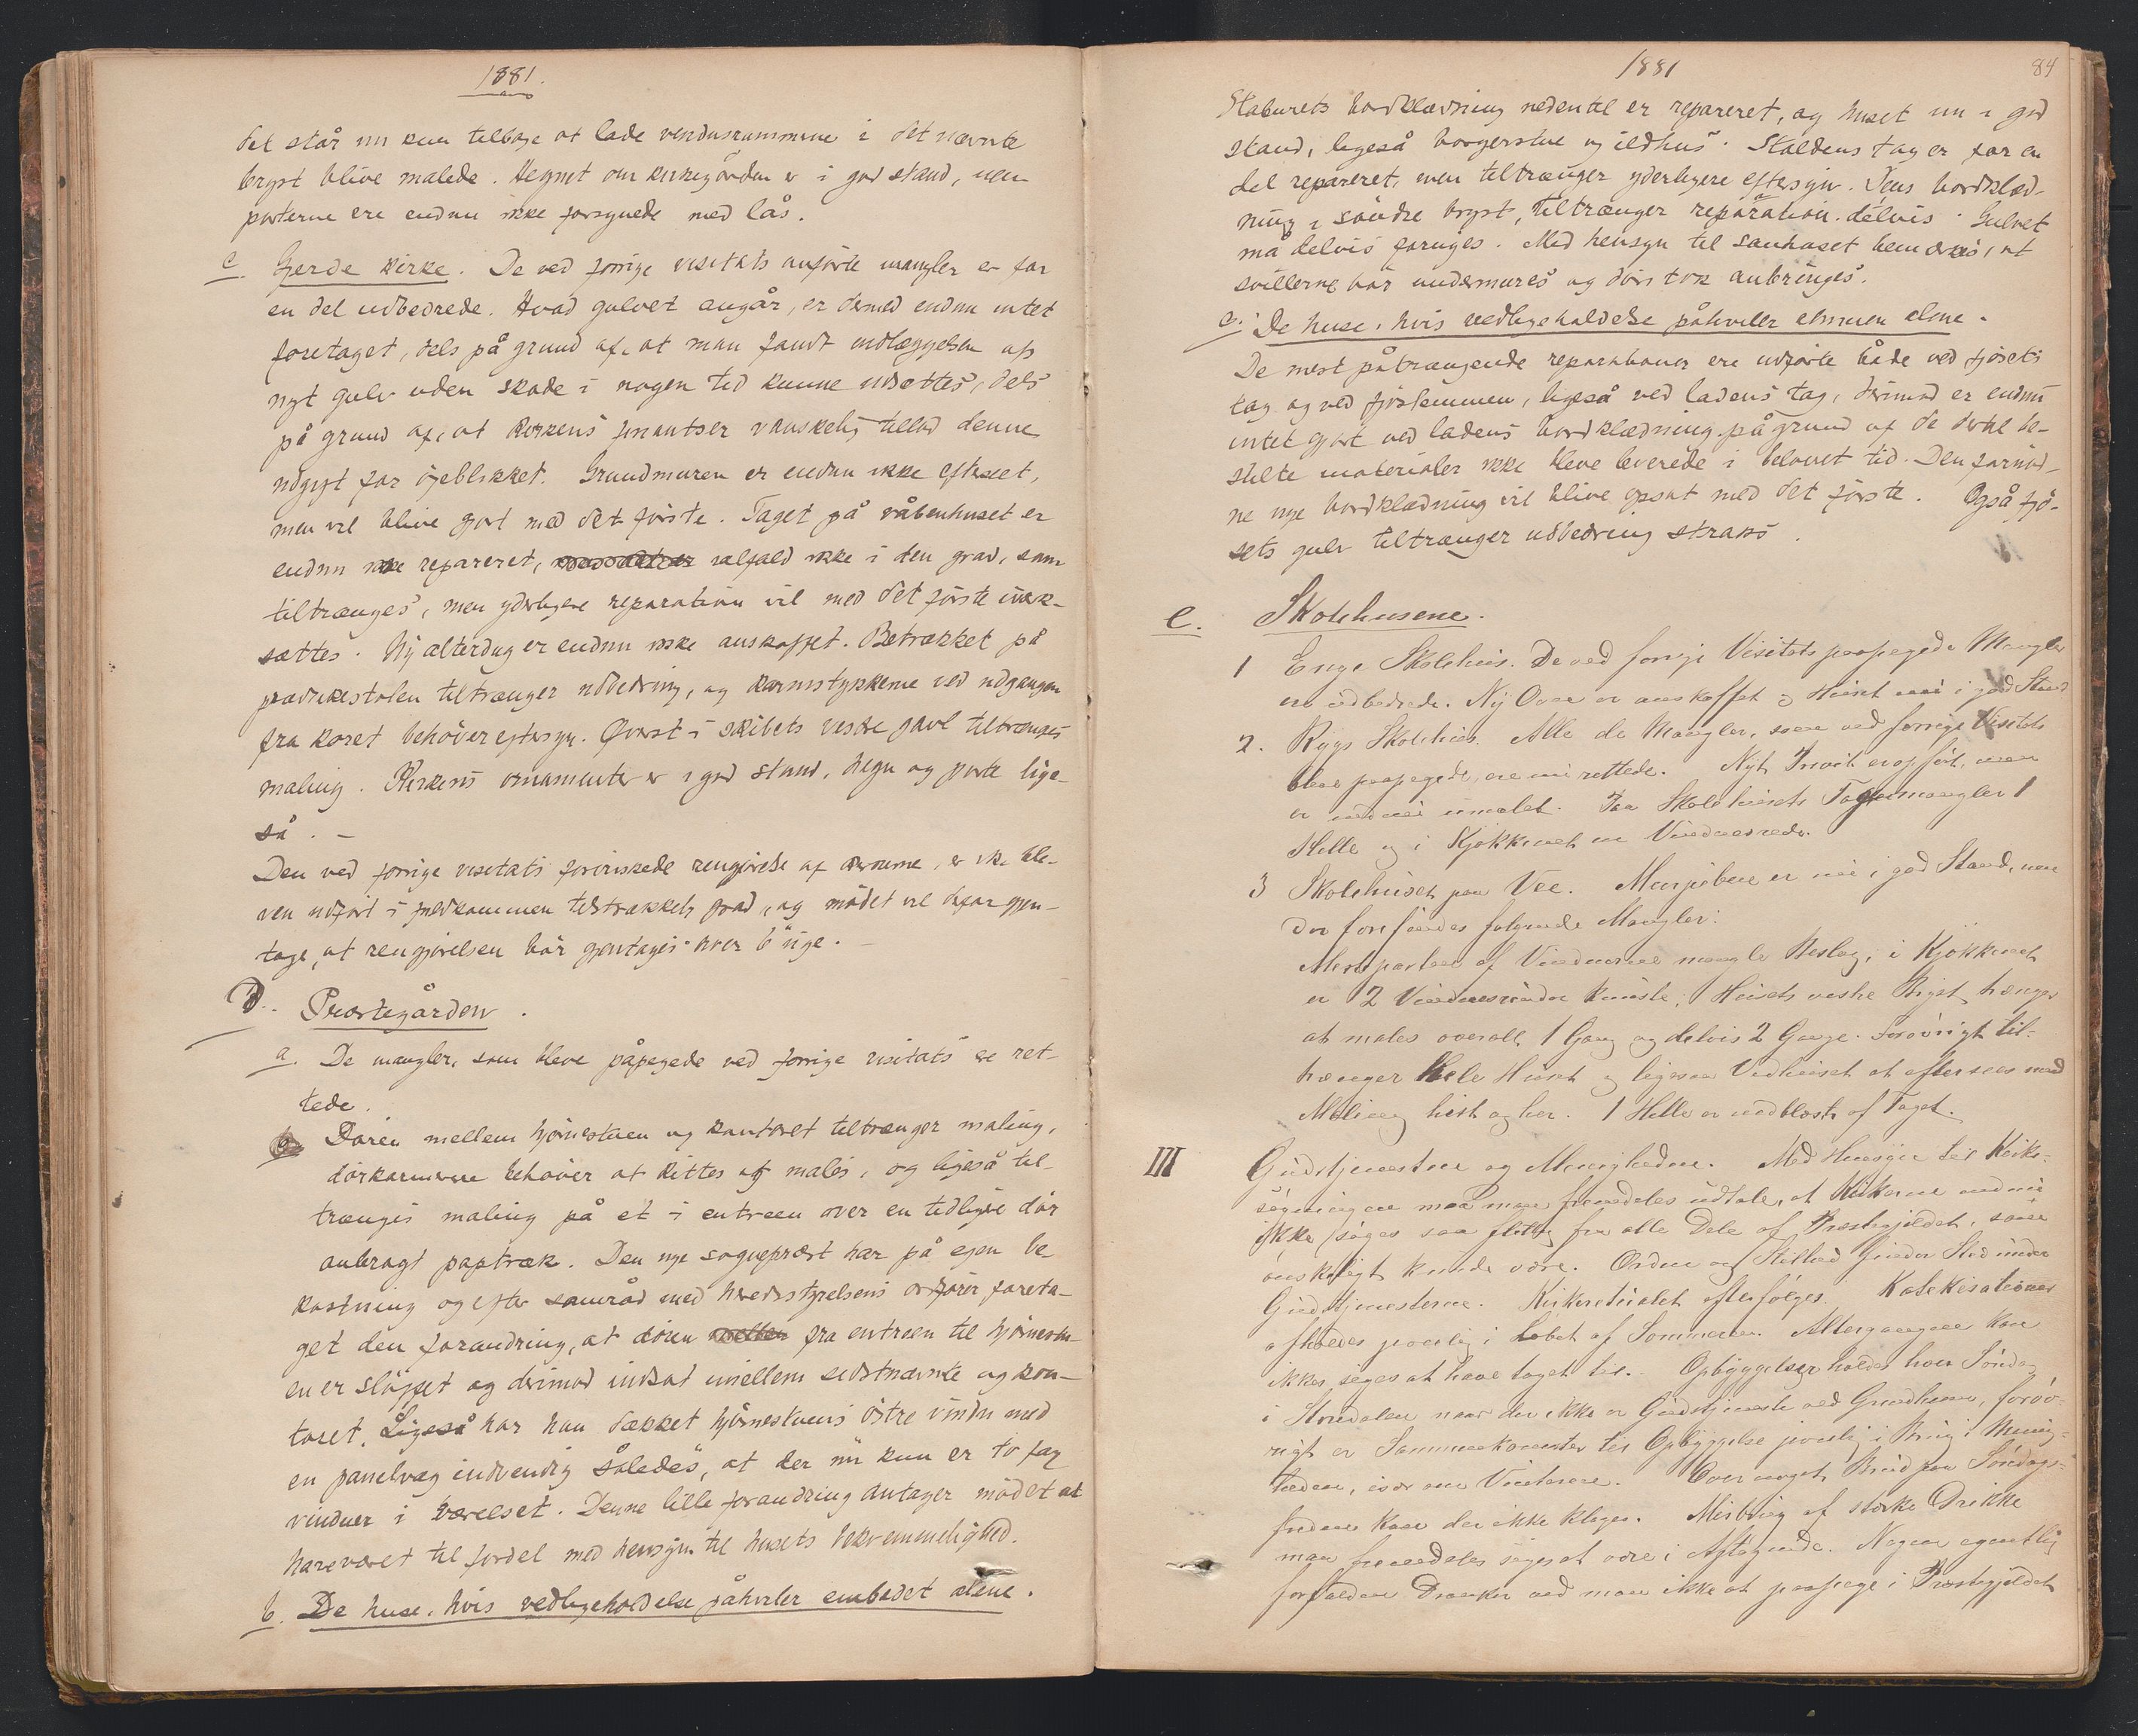 1881.
det står nu kun tilbage at lade vindusrammene i det nævnte
bryst blive malede. Hegnet om kirkegården er i god stand, men
porterne ere endnu ikke forsynede med lås.
c Gjerde kirke. De ved forrige visitats anförte mangler er for
en del udbedrede. Hvad gulvet angår, er dermed endnu intet
foretaget, dels på grund af, at man fandt indlæggelsen af
nyt gulv uden skade i nogen tid kunne udsættes, dels
på grund af, at kirkens finantser vanskelig tillod denne
udgift for öjeblikket. Grundmuren er endnu ikke efterseet,
men vil blive gjort med det förste. Taget på våbenhuset er
endnu ikke repareret, valfald ikke i den grad, som
tiltrænges, men yderligere reparation vil med det förste iværk-
sættes. Ny alterdug er endnu ikke anskaffet. Betrækket på
prædikestolen tiltrænger udbedring, og karmstykkerne ved udgangen
fra koret behöver eftersyn. Øverst i skibets vestre gavl tiltrænges
maling. Kirkens ornamenter er i god stand, hegn og porte lige-
så. –
Den ved forrige visitats foreinskede rengjörelse af kirkerne, er ikke ble-
ven udfört i fuldkommen tilstrækkelig grad, og mödet vil derfor gjen-
tage, at rengjörelsen bör gjentages hver 6te uge. –
D. Præstegården.
a. De mangler, som bleve påpegede ved forrige visitats ere ret-
tede.
Dören mellem hjörnestuen og kontoret tiltrænger maling,
dörkarmene behöver at kittes og males, og ligeså til-
trænges maling på et i entreen over en tidligere dör
anbragt paptræk. Den nye sogneprest har på egen be-
kostning og efter samråd med heredsstyrelsens ordförer foreta-
get den forandring, at dören mellem fra entreen til hjörnestu-
en er slöjfet og derimod indsat imellem sidstnævnte og kon-
toret. Ligeså har han dækket hjörnestuens östre vindu med
en panelvæg indvendig således, at der nu kun er to fag
vinduer i værelset. Denne lille forandring antager mödet at
have været til fordel med hensyn til husets bekvemmelighed.
b. De huse, hvis vedligeholdelse påhviler embedet alene.
1881
84
Staburets bordklædning nedentil er repareret, og huset nu i god
stand, ligeså borgerstue og ildhus. Staldens tag er for en
del repareret, men tiltrænger yderligere eftersyn. Dens bordklæd-
ning i söndre bryst, tiltrænger reparation delvis. Gulvet
må delvis fornyes. Med hensyn til sauhuset bemærkes, at
svillerne bör undermures og dörstok anbringes.
c. De huse, hvis vedligeholdelse påhviler almuen alene.
De mest påtrængende reparationer ere udförte både ved fjösets
tag og ved fjöslemmen, ligeså ved ladens tag, derimod er endnu
intet gjort ved ladens bordklædning på grund af de dertil be-
stilte materialer ikke bleve leverede i belovet tid. Den fornöd-
ne nye bordklædning vil blive opsat med det förste. Også fjö-
sets gulv tiltrænger udbedring straks.
e. Skolehusene.
1 Enge Skolehus. De ved forrige Visitats paapegede Mangler
ere udbedrede. Ny Ovn er anskaffet og Huset nu i god Stand
2. Rygs Skolehus. Alle de Mangler, som ved forrige Visitats
bleve paapegede, ere nu rettede. Nyt Privet er opfört, men
er endnu umalet. Paa Skolehusets Tag mangler 1
Helle og i Kjökkenet en Vinduesrude.
3 Skolehuset paa Vee. Murpiben er nu i god Stand, men
der forefindes følgende Mangler:
Mesteparten af Vinduerne mangle Beslag, i Kjökkenet
er 2 Vinduesruder knuste; Husets vestre Bryst trænger
at males overalt, 1 Gang og delvis 2 Gange. Forövrigt til-
trænger hele Huset og ligesaa Vedhuset at eftersees med
Maling hist og her. 1 Helle er nedblæst af Taget.
III Gudstjenesten og Menigheden. Med Hensyn til Kirke-
sögningen maa man fremdeles udtale, at Kirkerne endnu
ikke söges saa flittig fra alle Dele af Præstegjeldet, som
önskeligt kunde være. Orden og Stilhed finder Sted under
Gudstjenesterne. Kirkeritualet efterfölges. Katekisationer
afholdes jævnlig i Löbet af Sommeren. Altergangene kan
ikke siges at have taget til. Opbyggelser holdes hver Söndag
i Stordalen naar der ikke er Gudstjeneste ved Grindheim, foröv-
rigt er Sammenkomster til Opbyggelse jævnlig i Brug i Menig-
heden, især om Vinteren. Over noget Brud paa Söndags-
freden kan der ikke klages. Misbrug af stærke Drikke
maa fremdeles siges at være i Aftagende. Nogen egentlig
forfalden Dranker ved man ikke at paapege i Præstegjeldet